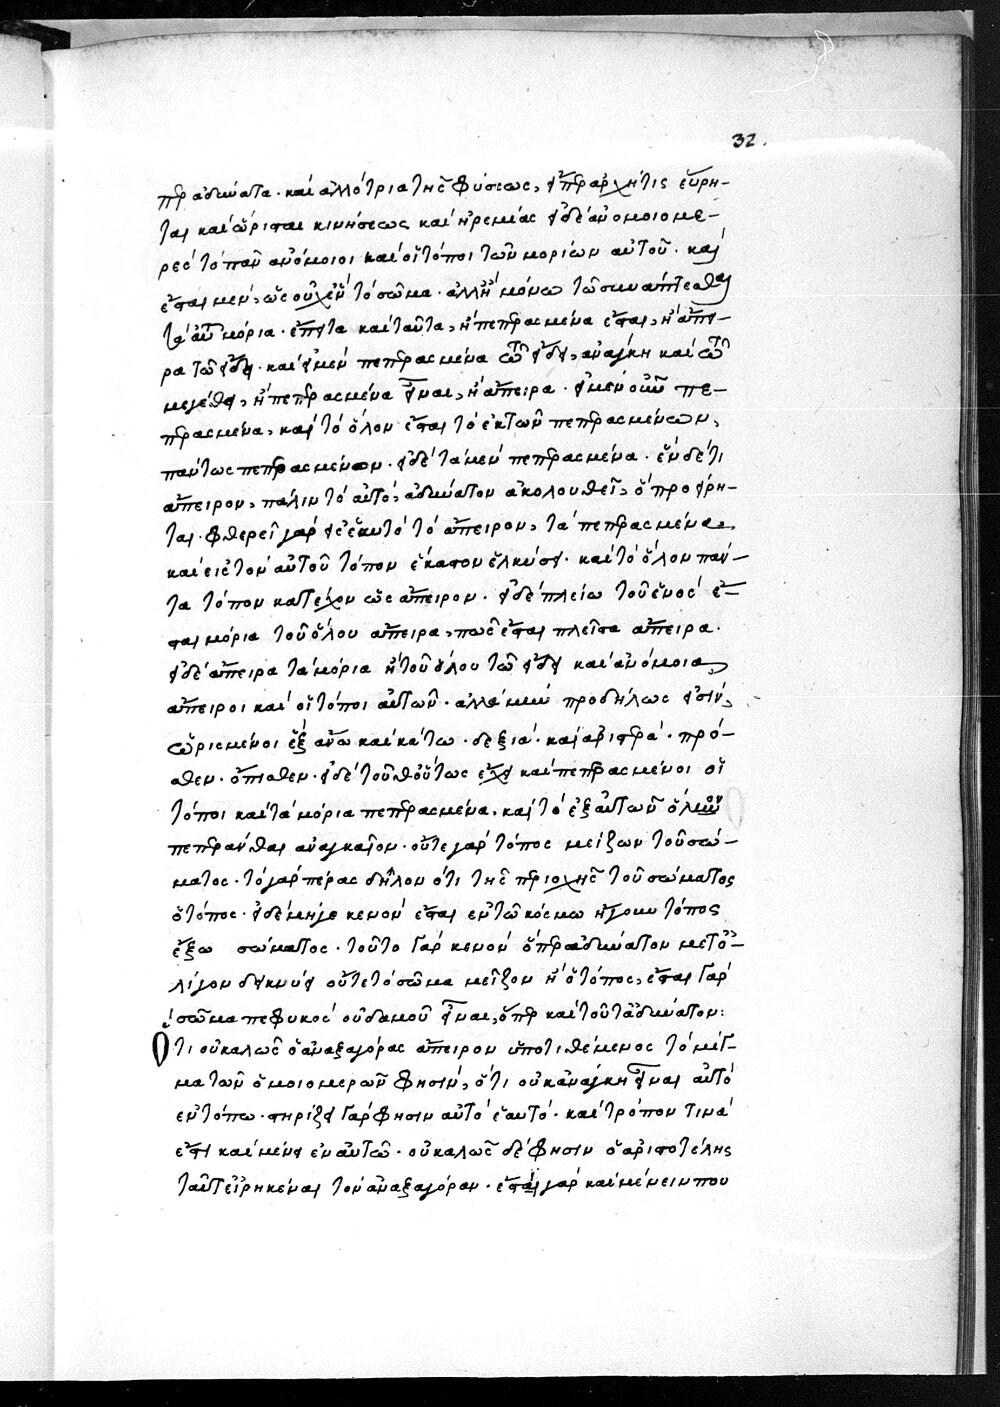 32.
περ ἀδύνατα. καὶ ἀλλότρια τῆς φύσεως, εἴπερ ἀρχή τις εὕρη-
ται καὶ ὥρισται κινήσεως καὶ ἠρεμίας εἰ δὲ ἀνομοιομε-
ρὲς τὸ πᾶν ἀνόμοιοι καὶ οἱ τόποι τῶν μορίων αὐτοῦ. καὶ
ἔσται μὲν, ὡς οὐχ ἓν τὸ σῶμα. ἀλλ' ἢ μόνω τῶ συνάπτεσθαι
τὰ αὐτοῦ μόρια. ἔπειτα καὶ ταῦτα, ἢ πεπερασμένα ἔσται, ἢ ἄπει-
ρα τῶ εἴδει. καὶ εἰ μὲν πεπερασμένα τῶ εἴδει, ἀνάγκη καὶ τῶ
μεγέθει, ἢ πεπερασμένα εἶναι, ἢ ἄπειρα. εἰ μὲν οὖν πε-
περασμένα, καὶ τὸ ὅλον ἔσται τὸ ἐκ τῶν πεπερασμένων,
πάντως πεπερασμένον. εἰ δὲ τὰ μὲν πεπερασμένα. ἓν δέ τι
ἄπειρον, πάλιν τὸ αὐτὸ, ἀδύνατον ἀκολουθεῖ, ὃ προείρη-
ται. φθερεῖ γὰρ εἰς ἑαυτὸ τὸ ἄπειρον, τὰ πεπερασμένα,
καὶ εἰς τὸν αὐτοῦ τόπον ἕκαστον ἑλκύσει. καὶ τὸ ὅλον πάν-
τα τόπον κατέχον ὡς ἄπειρον. εἰ δὲ πλείω τοῦ ἑνὸς ἔ-
σται μόρια τοῦ ὅλου ἄπειρα, πῶς ἔσται πλεῖστα ἄπειρα.
εἰ δὲ ἄπειρα τὰ μόρια ἢ τοῦ ὅλου τῶ εἴδει καὶ ἀνόμοια,
ἄπειροι καὶ οἱ τόποι αὐτῶν. ἀλλὰ μὴν προδήλως εἰσὶν,
ὡρισμένοι ἓξ ἄνω καὶ κάτω. δεξιά. καὶ ἀριστερά. πρό-
σθεν. ὄπισθεν. εἰ δὲ τοῦθ' οὕτως ἔχει καὶ πεπερασμένοι οἱ
τόποι καὶ τὰ μόρια πεπερασμένα. καὶ τὸ ἐξ αὐτῶν ὅλον
πεπεράνθαι ἀναγκαῖον. οὔτε γὰρ τόπος μείζων τοῦ σώ-
ματος. τὸ γὰρ πέρας δῆλον ὅτι τῆς περιοχῆς τοῦ σώματος
ὁ τόπος. εἰ δὲ μήγε κενὸν ἔσται ἐν τῶ κόσμω ἤγουν τόπος
ἔξω σώματος. τοῦτο γὰρ κενὸν ὅπερ ἀδύνατον μετ' ὀ-
λίγον δείκνυσι οὔτε τὸ σῶμα μεῖζον ἢ ὁ τόπος, ἔσται γὰρ
σῶμα πεφυκὸς οὐδαμοῦ εἶναι, ὅπερ καὶ τοῦτ' ἀδύνατον:
Ὅτι οὐ καλῶς ὁ ἀναξαγόρας ἄπειρον ὑποτιθέμενος τὸ μίγ-
μα τῶν ὁμοιομερῶν φησὶν, ὅτι οὐκ ἀνάγκη εἶναι αὐτὸ
ἐν τόπω. στηρίζει γὰρ φησιν αὐτὸ ἑαυτό. καὶ τρόπον τινὰ
ἔστι καὶ μένει ἐν αὑτῶ. οὐ καλῶς δέ φησιν ὁ ἀριστοτέλης
ταῦτ' εἰρηκέναι τὸν ἀναξαγόραν. ἔσται γὰρ καὶ μένειν που